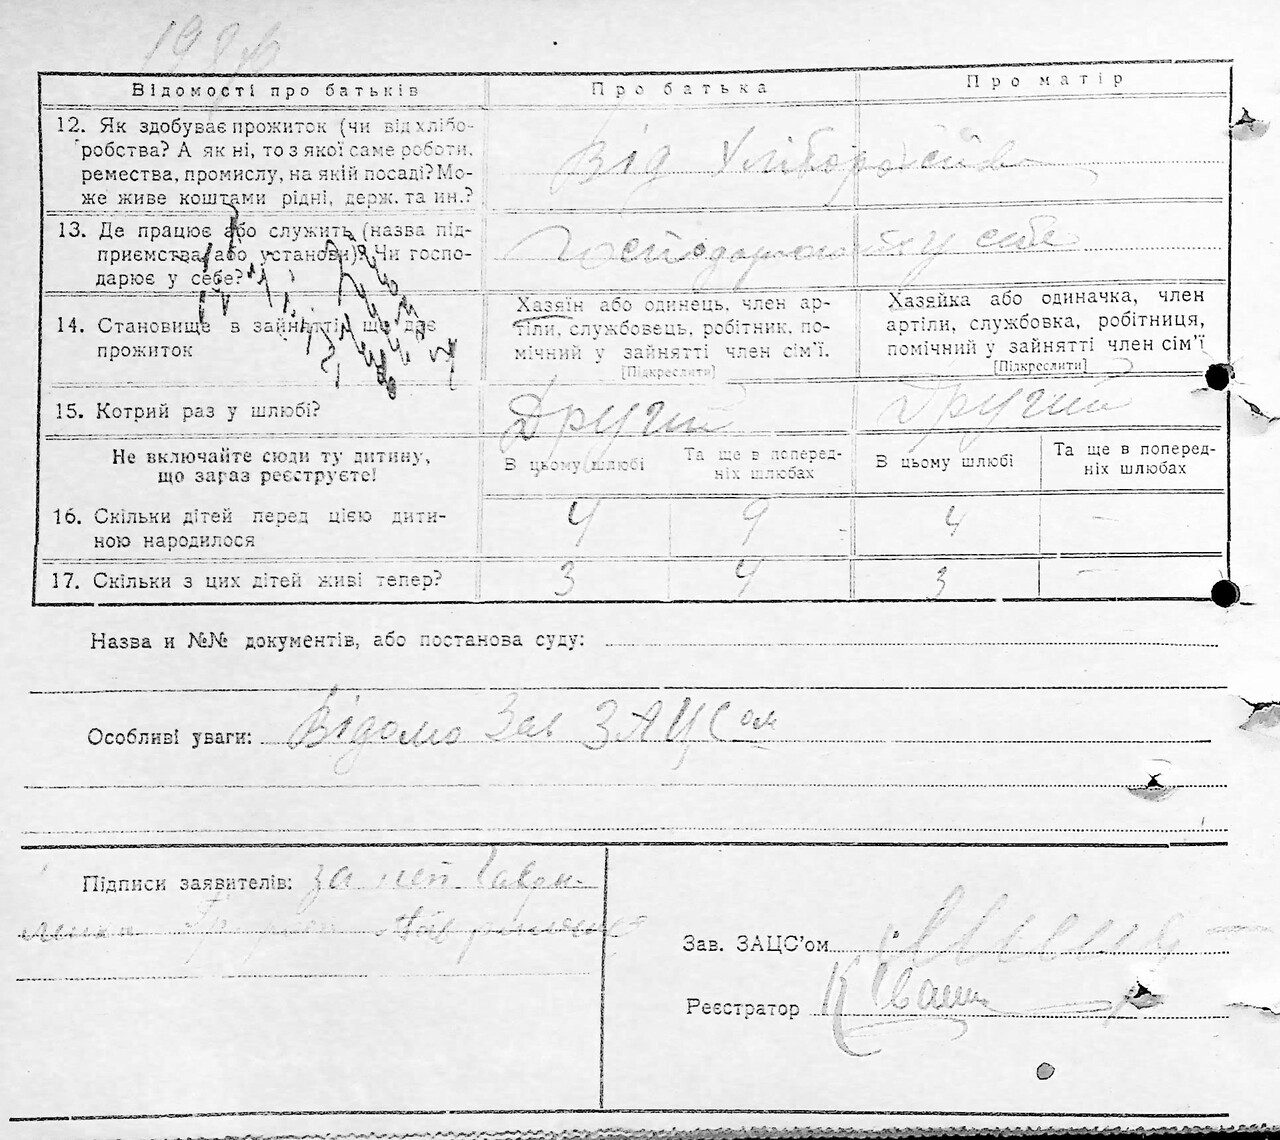 Відомості про батьків
Про батька
Про матір
12. Як здобуває прожиток (чи від хлібо-
робства? А як ні, то з якої саме роботи,
ремества, промислу, на якій посаді? Мо-
же живе коштами рідні, держ. та ин.?
Від Хліборобства
13. Де працює або служить (назва під-
приємства, або установи)? Чи госпо-
дарює у себе?
у себе
14. Становище в зайнятті, що дає
прожиток
Хазяїн або одинець, член ар-
тіли, службовець, робітник, по-
мічний у зайнятті член сім'ї.
[Підкреслити]
Хазяйка або одиначка, член
артіли, службовка, робітниця,
помічний у зайнятті член сім'ї
[Підкреслити]
15. Котрий раз у шлюбі?
Другий
Другий
Не включайте сюди ту дитину,
що зараз реєструєте!
В цьому шлюбі
Та ще в поперед-
ніх шлюбах
В цьому шлюбі
Та ще в поперед-
ніх шлюбах
16. Скільки дітей перед цією дити-
ною народилося
4
9
4
-
17. Скільки з цих дітей живі тепер?
3
4
3
-
Назва и №№ документів, або постанова суду:
Особливі уваги: Відомо Зав ЗАЦСом
Підписи заявителів: за неп
Зав. ЗАЦС'ом
Реєстратор